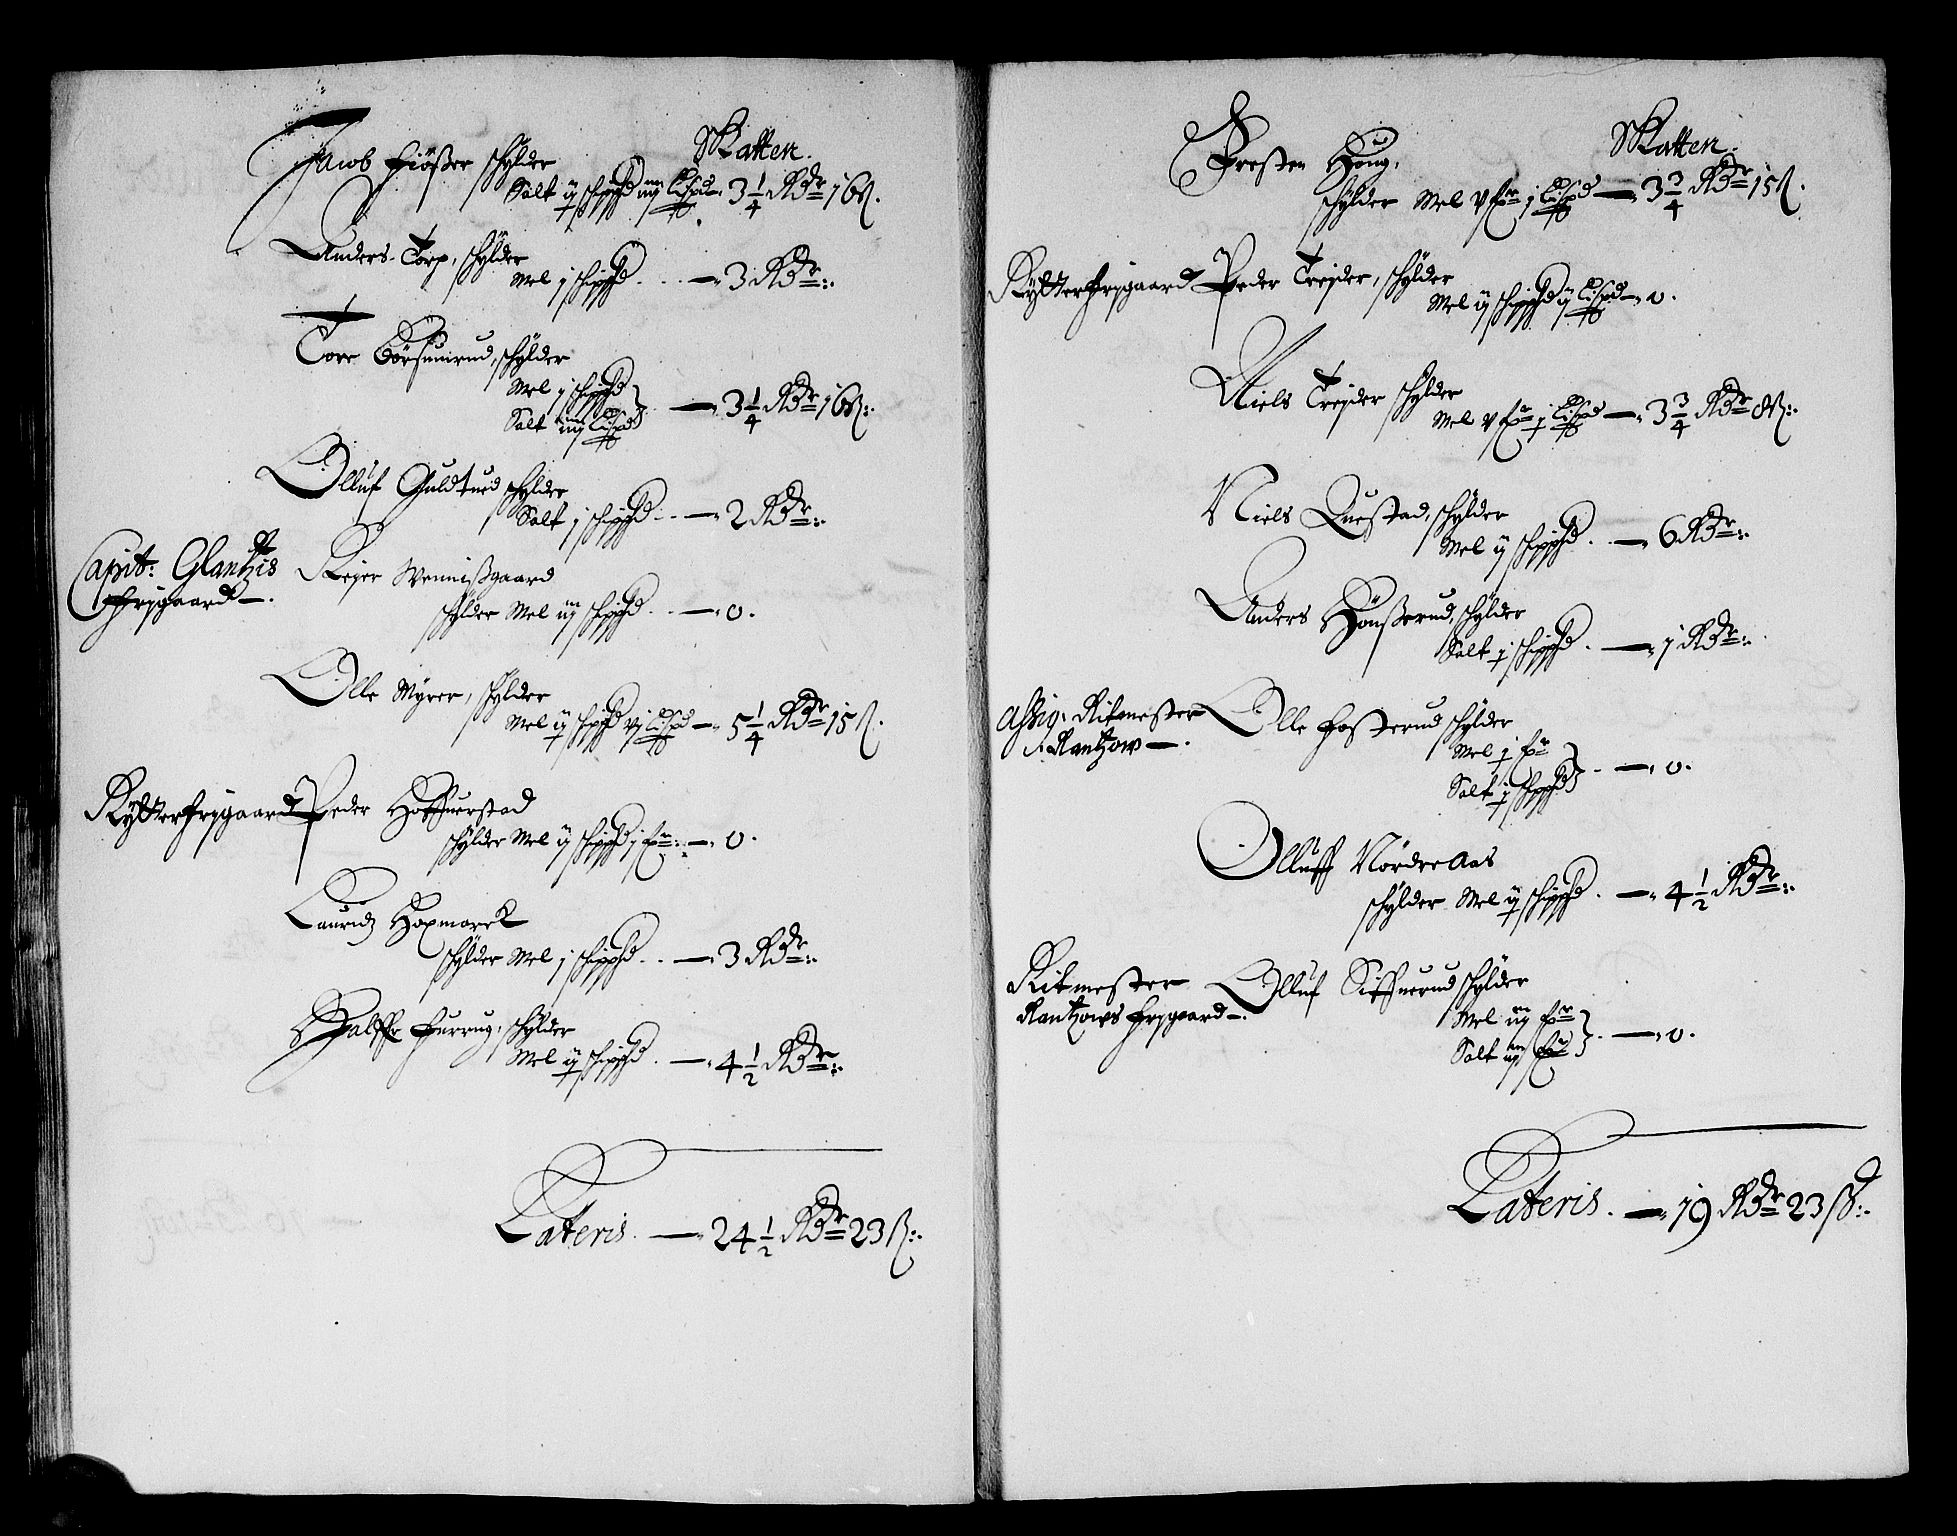 Skatten.
Jacob Fiøßer skylder
Salt ij schippd iiij Lispd — 3 1/4 Rdr 16 ß.
Anders Torp, skylder
Mel j schippd . . — 3 Rdr:
Tore Børsumrud, skylder
Mel j schippd
Salt iiij Lispd — 3 1/4 Rdr 16 ß:
Olluf Guldtued skylder
Salt j schippd . . — 2 Rdr:
Capit: Glantzis
frjgaard —.
Rejer Wennißgaard
skylder Mel iij schippd . . — 0.
Olle Myrer, skylder
Mel ij schippd vj Lispd — 5 1/4 Rdr 15 ß.
Rytterfrjgaard Peder Hoffuerstad
skylder Mel ij schippd j fr: — 0.
Lauridz Hoxmarck
skylder Mel j schippd . . — 3 Rdr:
Halffr Furrug, skylder
Mel ij schippd . — 4 1/2 Rdr:
Lateris. — 24 1/2 Rdr 23 ß:
Skatten.
Presten Houg,
skylder Mel v fr j Lispd — 3 3/4 Rdr 15 ß.
Rytterfrjgaard Peder Trejder, skylder
Mel ij schippd ij Lispd — 0.
Niels Trejder skylder
Mel v fr j Lispd — 3 3/4 Rdr 8 ß:
Niels Questad, skylder
Mel ij schippd . — 6 Rdr:
Anders Hønßerud, skylder
Salt j schippd . — 1 Rdr:
Assig: Ritmester
Rantzow —.
Olle Fosterud skylder
Mel j fr
Salt j schippd . — 0.
Olluff Nordre Aas
skylder Mel ij schippd . — 4 1/2 Rdr:
Ritmester
Rantzows frjgaard —.
Olluf Siffuerud skylder
Mel iij fr
Salt iij fr . — 0.
Lateris. — 19 Rdr 23 ß: